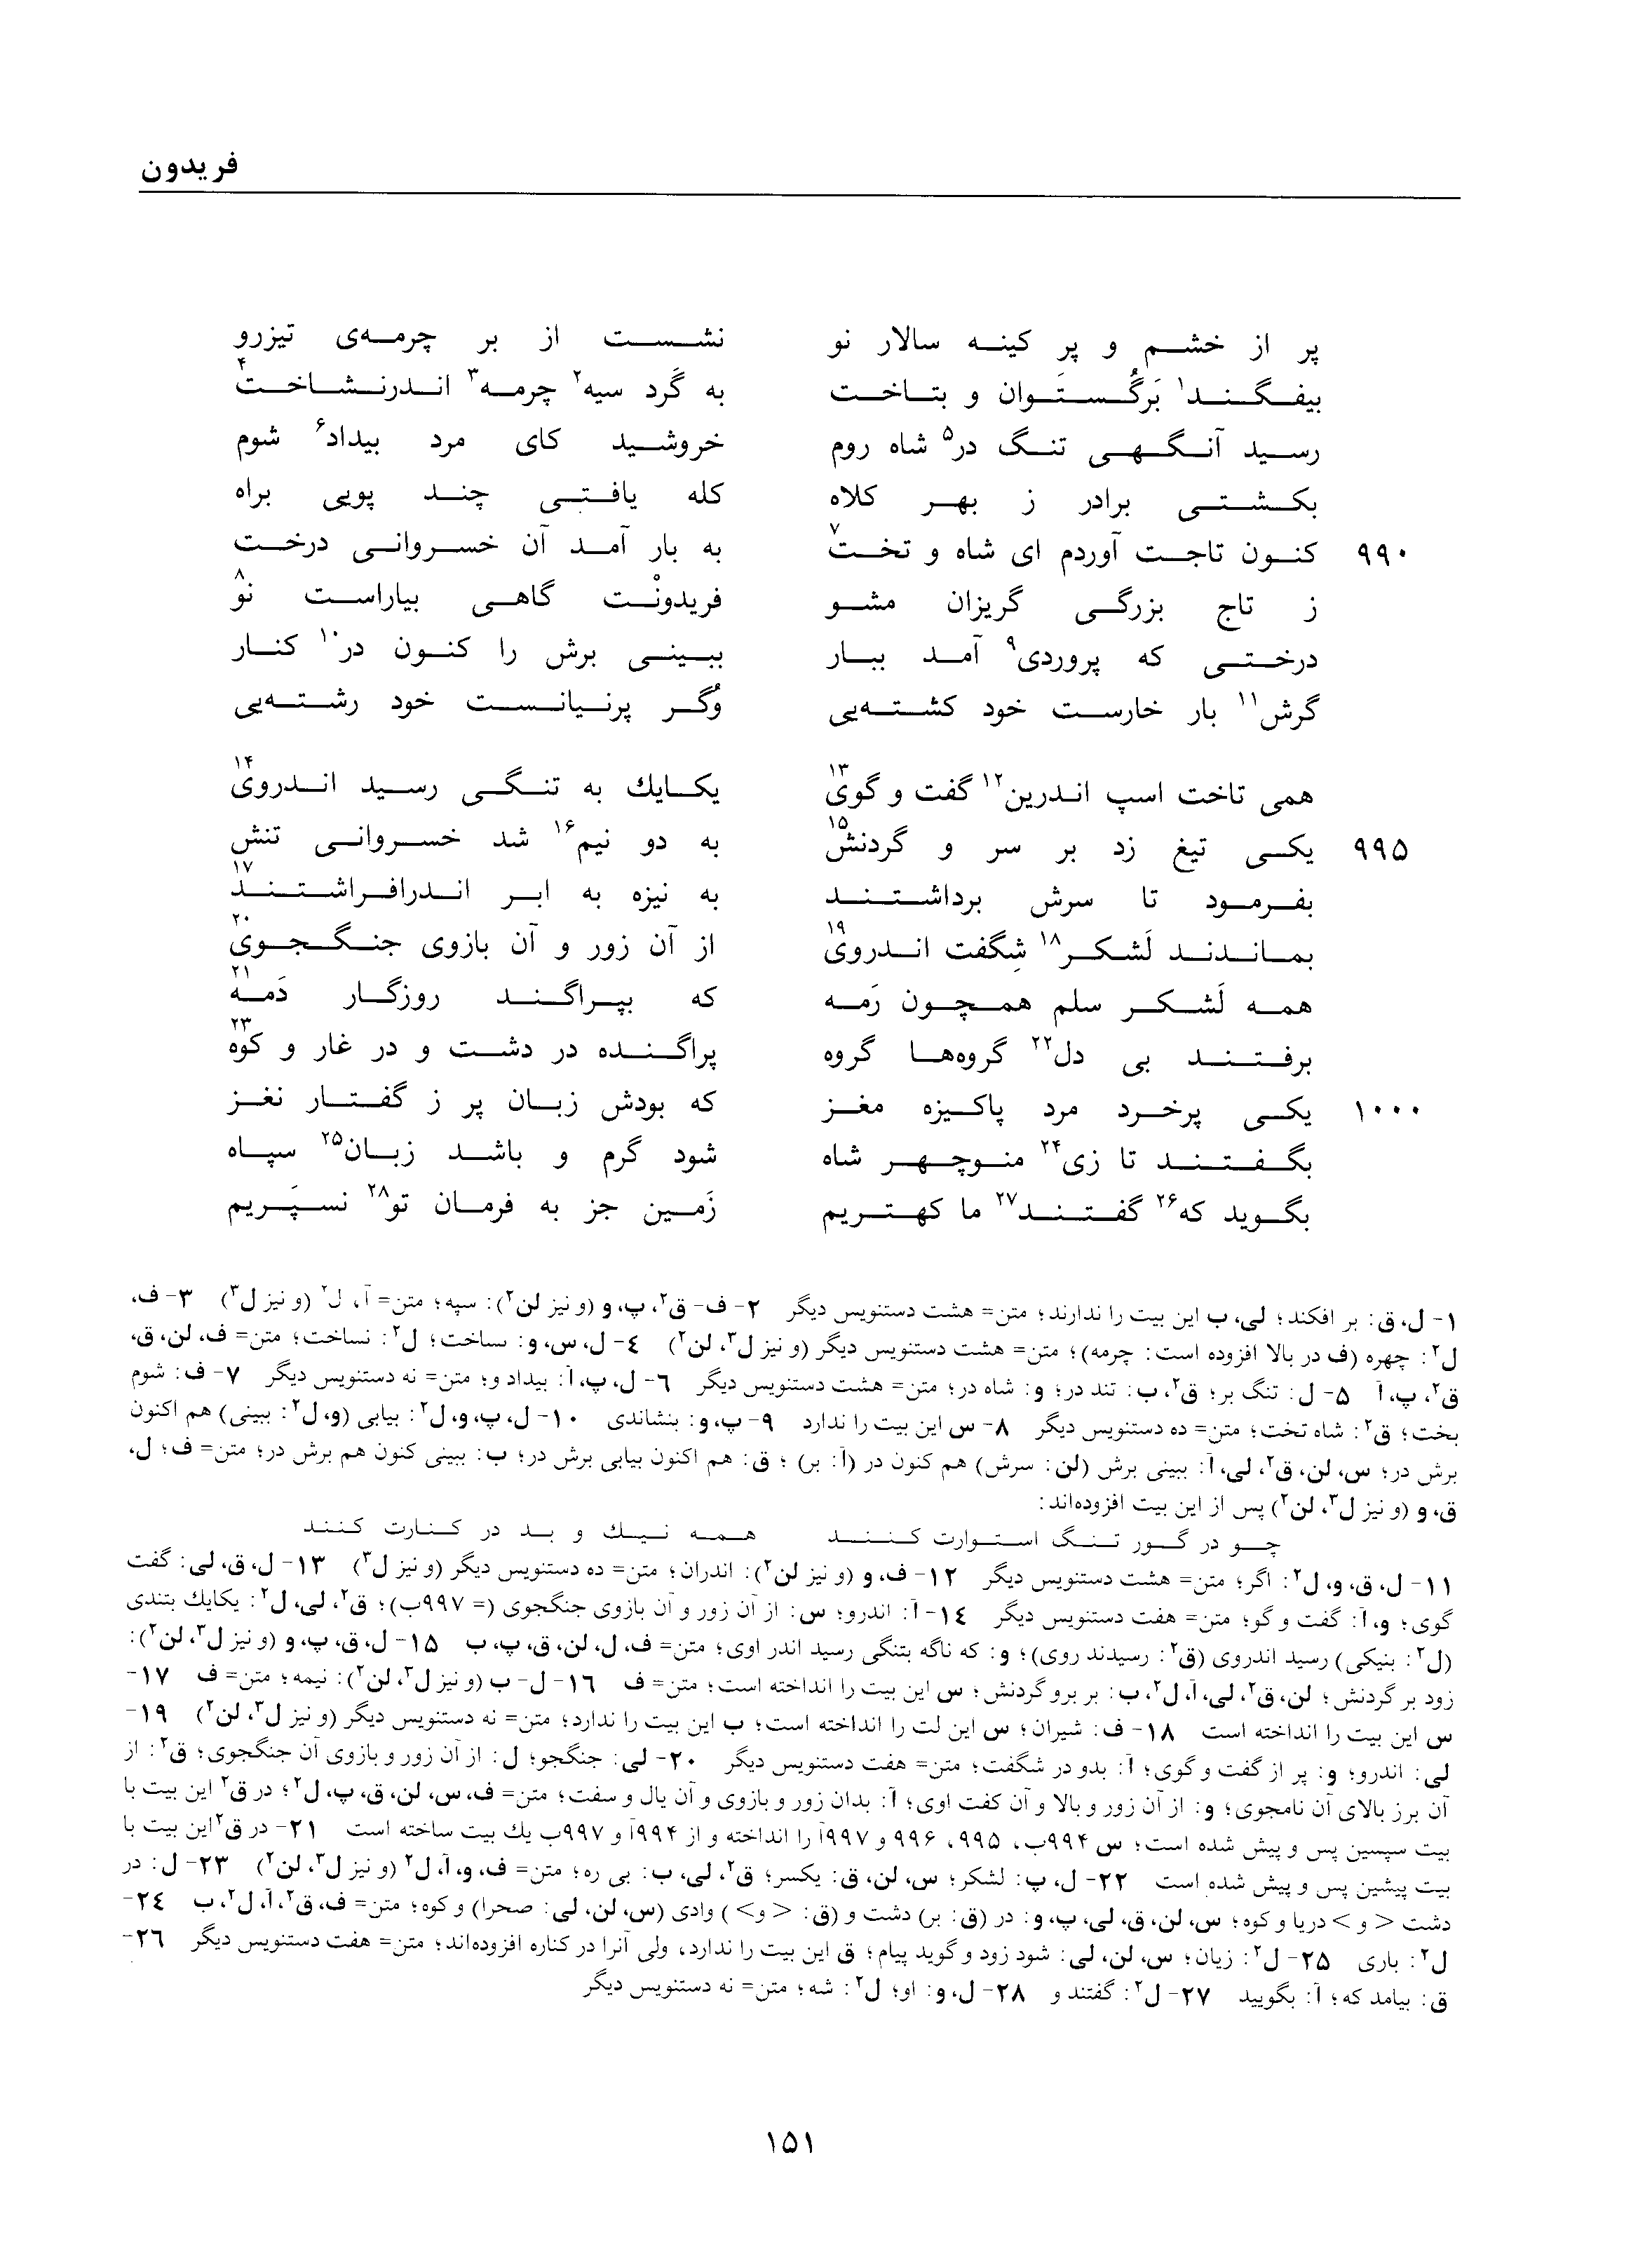 فریدون
پر از خشم و پر کینه سالار نو نشست از بر چرمه‌ی تیزرو
بیفگند۱ بَرگُستَوان و بتاخت به گَرد سیه۲ چرمه۳ اندرنشاخت۴
رسید آنگهی تنگ در۵ شاه روم خروشید کای مرد بیداد۶ شوم
بکشتی برادر ز بهر کلاه کله یافتی چند پویی براه
۹۹۰ کنون تاجت آوردم ای شاه و تخت۷ به بار آمد آن خسروانی درخت
ز تاج بزرگی گریزان مشو فریدونْت گاهی بیاراست نَو۸
درختی که پروردی۹ آمد ببار ببینی برش را کنون در۱۰ کنار
گرش۱۱ بار خارست خود کشته‌یی وُگر پرنیانست خود رشته‌یی
همی تاخت اسپ اندرین۱۲ گفت و گوی۱۳ یکایك به تنگی رسید اندروی۱۴
۹۹۵ یکی تیغ زد بر سر و گردنش۱۵ به دو نیم۱۶ شد خسروانی تنش
بفرمود تا سرش برداشتند به نیزه به ابر اندرافراشتند۱۷
بماندند لَشکر۱۸ شِگفت اندروی۱۹ از آن زور و آن بازوی جنگجوی۲۰
همه لَشکر سلم همچون رَمه که بپراگند روزگار دَمه۲۱
برفتند بی دل۲۲ گروه‌ها گروه پراگنده در دشت و در غار و کوه۲۳
۱۰۰۰ یکی پرخرد مرد پاکیزه مغز که بودش زبان پر ز گفتار نغز
بگفتند تا زی۲۴ منوچهر شاه شود گرم و باشد زبان۲۵ سپاه
بگوید که۲۶ گفتند۲۷ ما کهتریم زَمین جز به فرمان تو۲۸ نسپَریم
۱- ل، ق: بر افکند؛ لی، ب این بیت را ندارند؛ متن= هشت دستنویس دیگر ۲- ف- ق۲، پ، و (و نیز لن۲): سپه؛ متن= آ، ل۲ (و نیز ل۳) ۳- ف،
ل۲: چهره (ف در بالا افزوده است: چرمه)؛ متن= هشت دستنویس دیگر (و نیز ل۳، لن۲) ٤- ل، س، و: ساخت؛ ل۲: نساخت؛ متن= ف، لن، ق،
ق۲، پ، آ ۵- ل: تنگ بر؛ ق۲، ب: تند در؛ و: شاه در؛ متن= هشت دستنویس دیگر ٦- ل، پ، آ: بیداد و؛ متن= نه دستنویس دیگر ۷- ف: شوم
بخت؛ ق۲: شاه تخت؛ متن= ده دستنویس دیگر ۸- س این بیت را ندارد ۹- پ، و: بنشاندی ۱۰- ل، پ، و، ل۲: بیابی (و، ل۲: ببینی) هم اکنون
برش در؛ س، لن، ق۲، لی، آ: ببینی برش (لن: سرش) هم کنون در (آ: بر) ؛ ق: هم اکنون بیابی برش در؛ ب: ببینی کنون هم برش در؛ متن= ف؛ ل،
ق، و (و نیز ل۳، لن۲) پس از این بیت افزوده‌اند:
چو در گور تنگ استوارت کنند همه نیك و بد در کنارت کنند
۱۱- ل، ق، و، ل۲: اگر؛ متن= هشت دستنویس دیگر ۱۲- ف، و (و نیز لن۲): اندران؛ متن= ده دستنویس دیگر (و نیز ل۳) ۱۳- ل، ق، لی: گفت
گوی؛ و، آ: گفت و گو؛ متن= هفت دستنویس دیگر ۱٤- آ: اندرو؛ س: از آن زور و آن بازوی جنگجوی (= ۹۹۷ب)؛ ق۲، لی، ل۲: یکایك بتندی
(ل۲: بنیکی) رسید اندروی (ق۲: رسیدند روی)؛ و: که ناگه بتنگی رسید اندر اوی؛ متن= ف، ل، لن، ق، پ، ب ۱۵- ل، ق، پ، و (و نیز ل۳، لن۲):
زود بر گردنش؛ لن، ق۲، لی، آ، ل۲، ب: بر بر و گردنش؛ س این بیت را انداخته است؛ متن= ف ۱٦- ل- ب (و نیز ل۳، لن۲): نیمه؛ متن= ف ۱۷-
س این بیت را انداخته است ۱۸- ف: شیران؛ س این لت را انداخته است؛ ب این بیت را ندارد؛ متن= نه دستنویس دیگر (و نیز ل۳، لن۲) ۱۹-
لی: اندرو؛ و: پر از گفت و گوی؛ آ: بدو در شگفت؛ متن= هفت دستنویس دیگر ۲۰- لی: جنگجو؛ ل: از آن زور و بازوی آن جنگجوی؛ ق۲: از
آن برز بالای آن نامجوی؛ و: از آن زور و بالا و آن کفت اوی؛ آ: بدان زور و بازوی و آن یال و سفت؛ متن= ف، س، لن، ق، پ، ل۲؛ در ق۲ این بیت با
بیت سپسین پس و پیش شده است؛ س ۹۹٤ب، ۹۹۵، ۹۹٦ و ۹۹۷آ را انداخته و از ۹۹٤آ و ۹۹۷ب یك بیت ساخته است ۲۱- در ق۲ این بیت با
بیت پیشین پس و پیش شده است ۲۲- ل، پ: لشکر؛ س، لن، ق: یکسر؛ ق۲، لی، ب: بی ره؛ متن= ف، و، آ، ل۲ (و نیز ل۳، لن۲) ۲۳- ل: در
دشت <و> دریا و کوه؛ س، لن، ق، لی، پ، و: در (ق: بر) دشت و (ق: <و>) وادی (س، لن، لی: صحرا) و کوه؛ متن= ف، ق۲، آ، ل۲، ب ۲٤-
ل۲: باری ۲۵- ل۲: زیان؛ س، لن، لی: شود زود و گوید پیام؛ ق این بیت را ندارد، ولی آنرا در کناره افزوده‌اند؛ متن= هفت دستنویس دیگر ۲٦-
ق: بیامد که؛ آ: بگویید ۲۷- ل۲: گفتند و ۲۸- ل، و: او؛ ل۲: شه؛ متن= نه دستنویس دیگر
۱۵۱